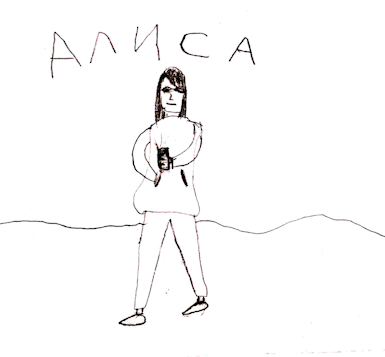 АЛИСА